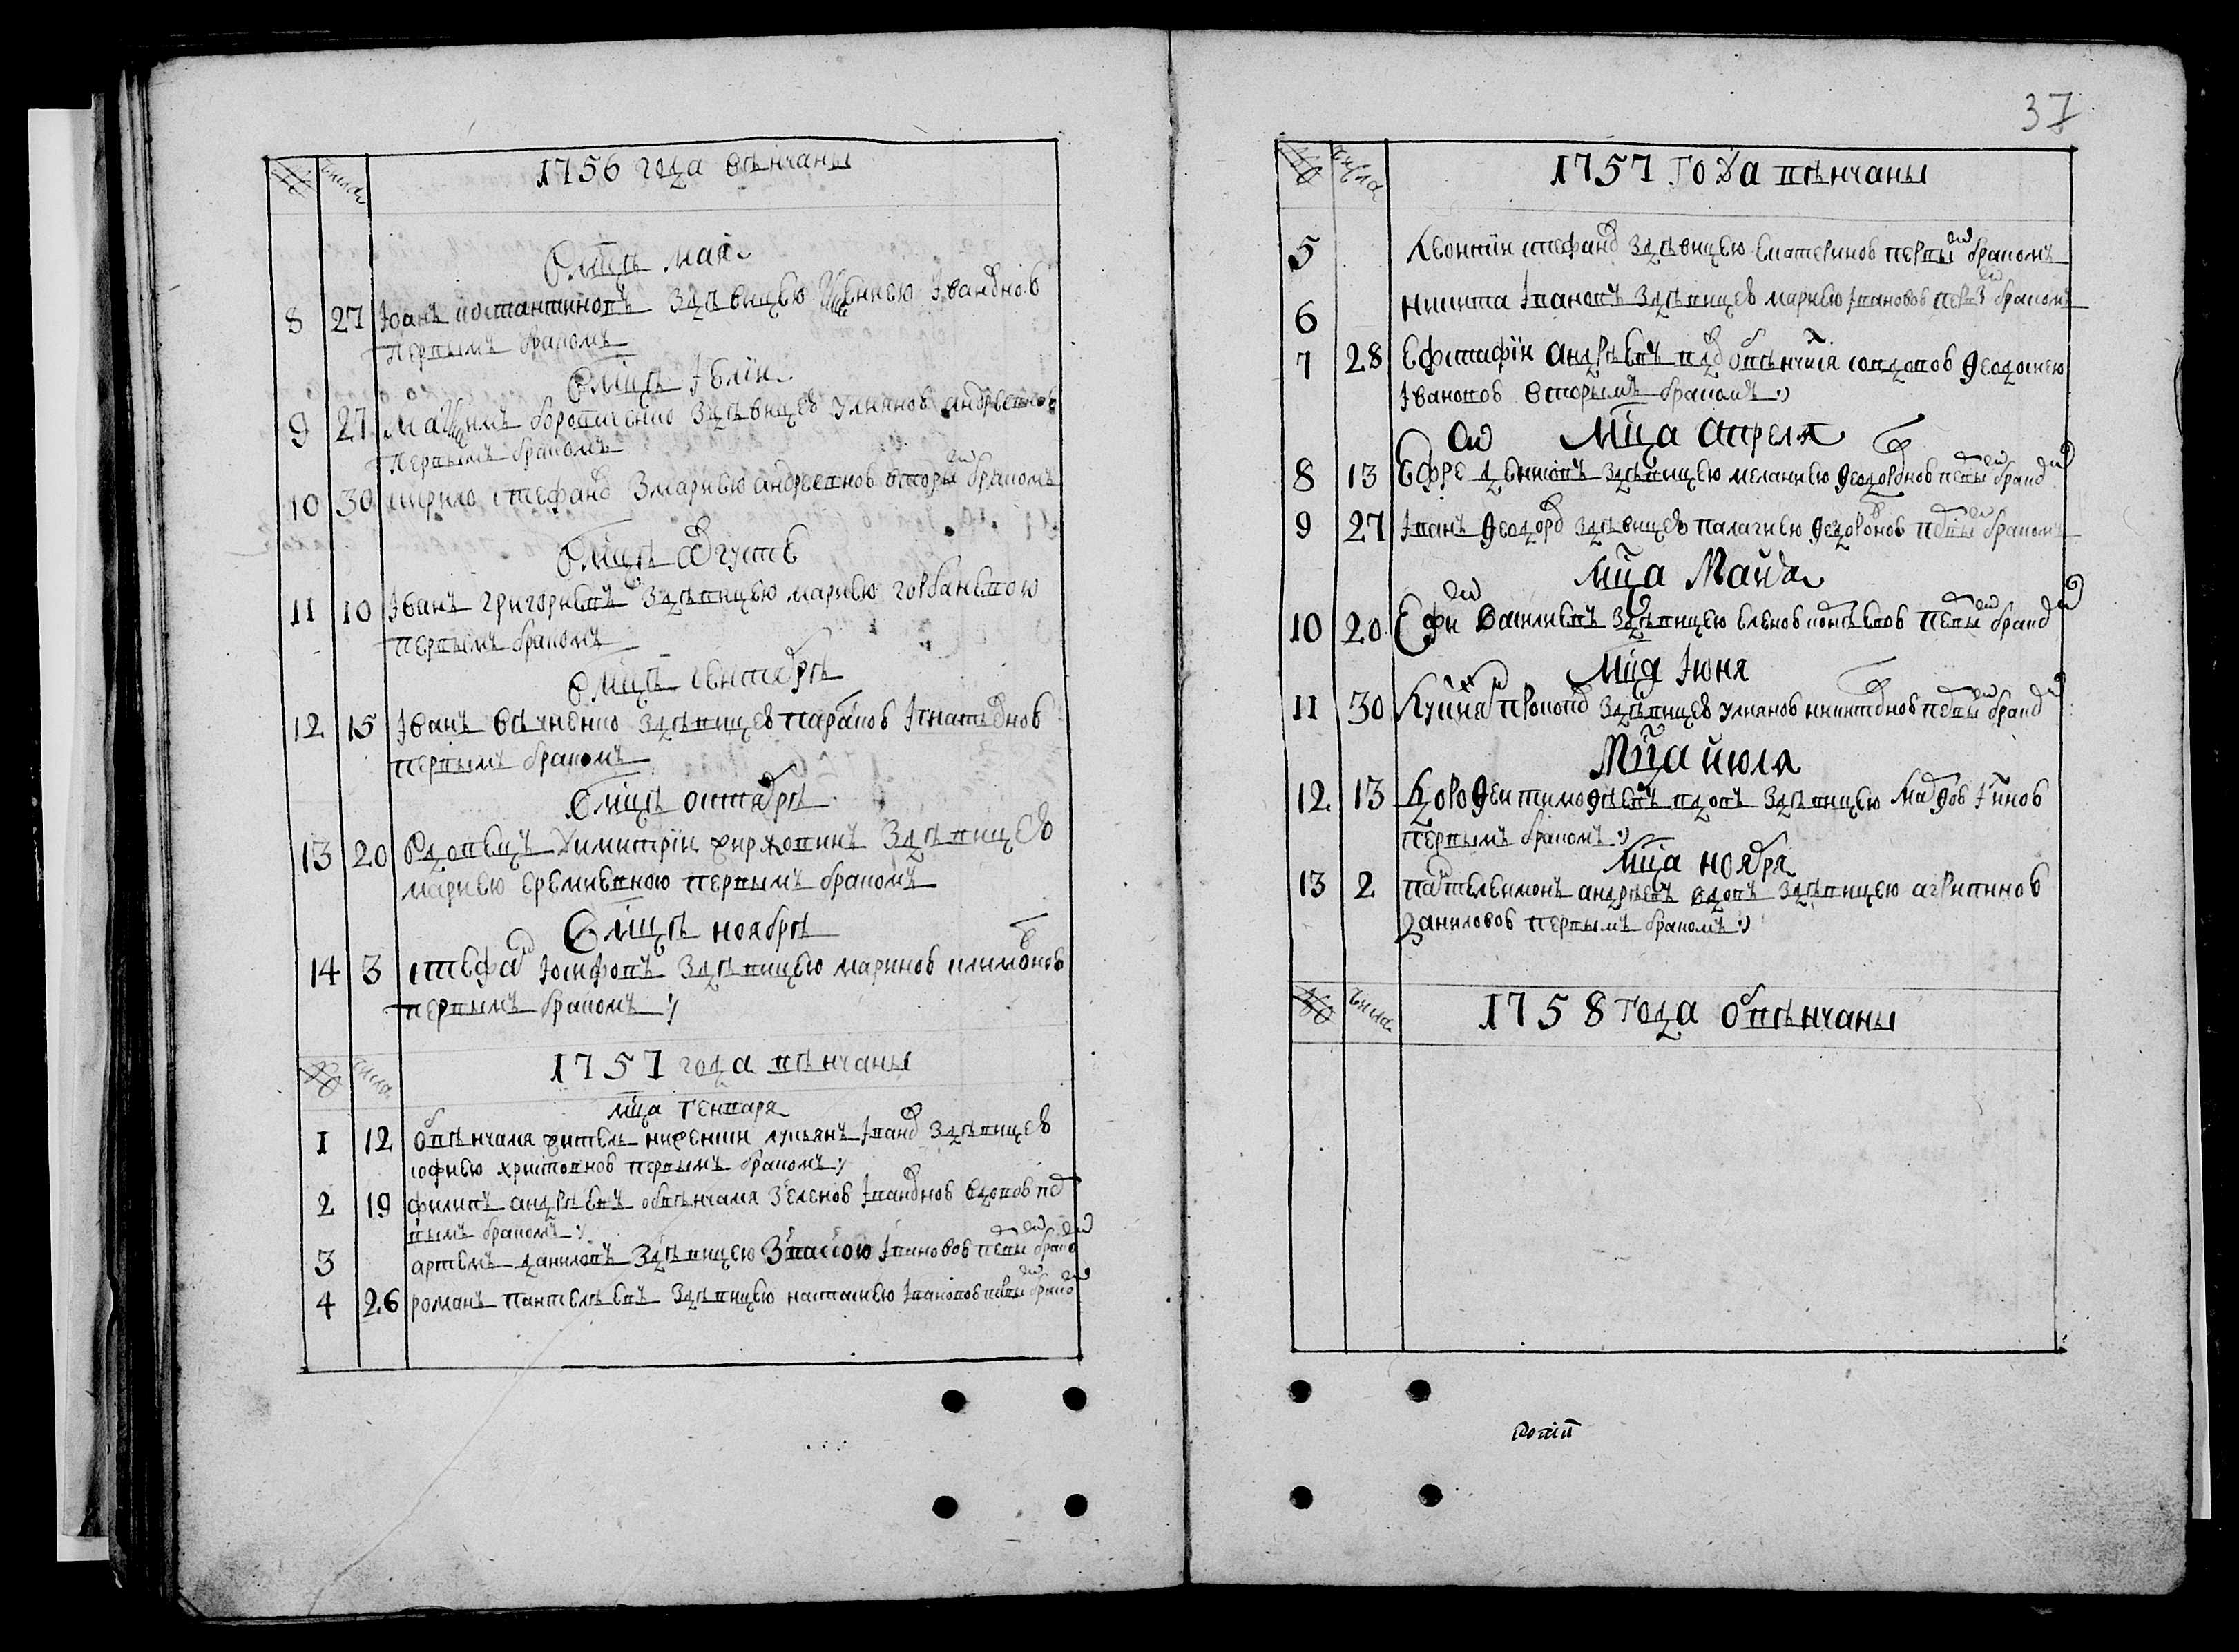 1756 года вѣнчаны
В мцѣ маи
8 27 Іоанъ костантиновъ з дѣвицею Ксениею Івановною
первымъ бракомъ
В мцѣ Іюлии
9 27 Маѯимъ з дѣвицею улияною андреевною
первымъ бракомъ
10 30 кирило стефанов з мариею андреевною вторым бракомъ
В мцѣ августѣ
11 10 Іванъ григориевъ з дѣвицею мариею горбаневою
первымъ бракомъ
В мцѣ сентябрѣ
12 15 Іванъ з дѣвицею параскою Ігнатовною
первымъ бракомъ
В мцѣ октябрѣ
13 20 вдовецъ Димитрии з дѣвицею
мариею еремиевною первымъ бракомъ
В мцѣ ноябрѣ
14 3 стефан Іосифовъ з дѣвицею мариною климовною
первымъ бракомъ
1757 года вѣнчаны
мца генваря
1 12 обвѣнчался житель лукьянъ Іванов з дѣвицею
софиею христовною первымъ бракомъ
2 19 филипъ андрѣевъ обвѣнчался з еленою Івановною вдовою пер
вымъ бракомъ
3 артемъ даниловъ з дѣвицею Івановою первым браком
4 26 романъ пантелѣевъ з дѣвицею настасиею Івановою первым браком
37
числа 1757 года вѣнчаны
5 Леонтии стефанов з дѣвицею екатериною первым бракомъ
6 никита Івановъ з дѣвицею мариею Івановою перв бракомъ
7 28 Евстафии андрѣевъ вдов обвѣнчался со вдовою Ѳеодосиею
Івановою вторымъ бракомъ
Мца Апреля
8 13 Ефрем з дѣвицею меланиею Ѳеодоровною первым браком
9 27 Іванъ Ѳеодоров з дѣвицею палагиею Ѳедоровною первым бракомъ
Мца Маия
10 20 Ефим Василиевъ з дѣвицею еленою первым браком
Мця Іюня
11 30 Прокопов з дѣвицею улияною никитовною первым браком
Мца июля
12 13 Дороѳеи тимоѳѣевъ вдовъ з дѣвицею
первымъ бракомъ
Мца ноября
13 2 пантелеимонъ андрѣевъ вдовъ з дѣвицею агрипиною
даниловою первымъ бракомъ
числа 1758 года обвѣнчаны